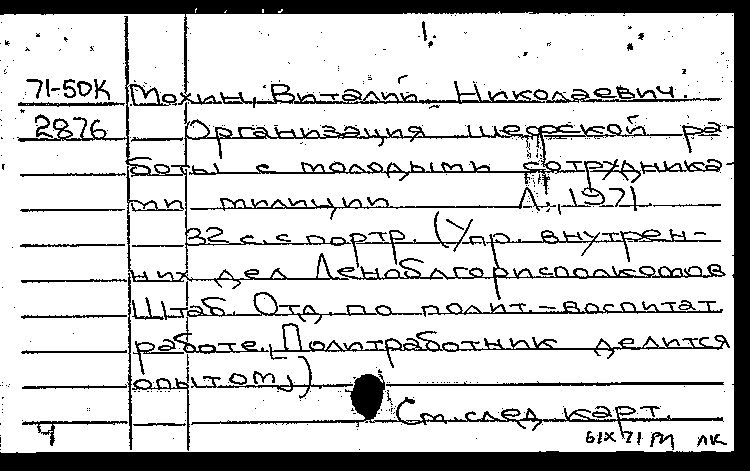 1.
71-50К Мохин, Виталий Николаевич.
2876 Организация шефской ра-
боты с молодыми сотрудника-
ми милиции Л., 1971.
32 с. с портр. (Упр. внутрен-
них дел Леноблгорисполкомов.
Штаб. Отд. по полит.-воспитат.
работе. [Политработник делится
опытом])
См. след. карт.
Ч